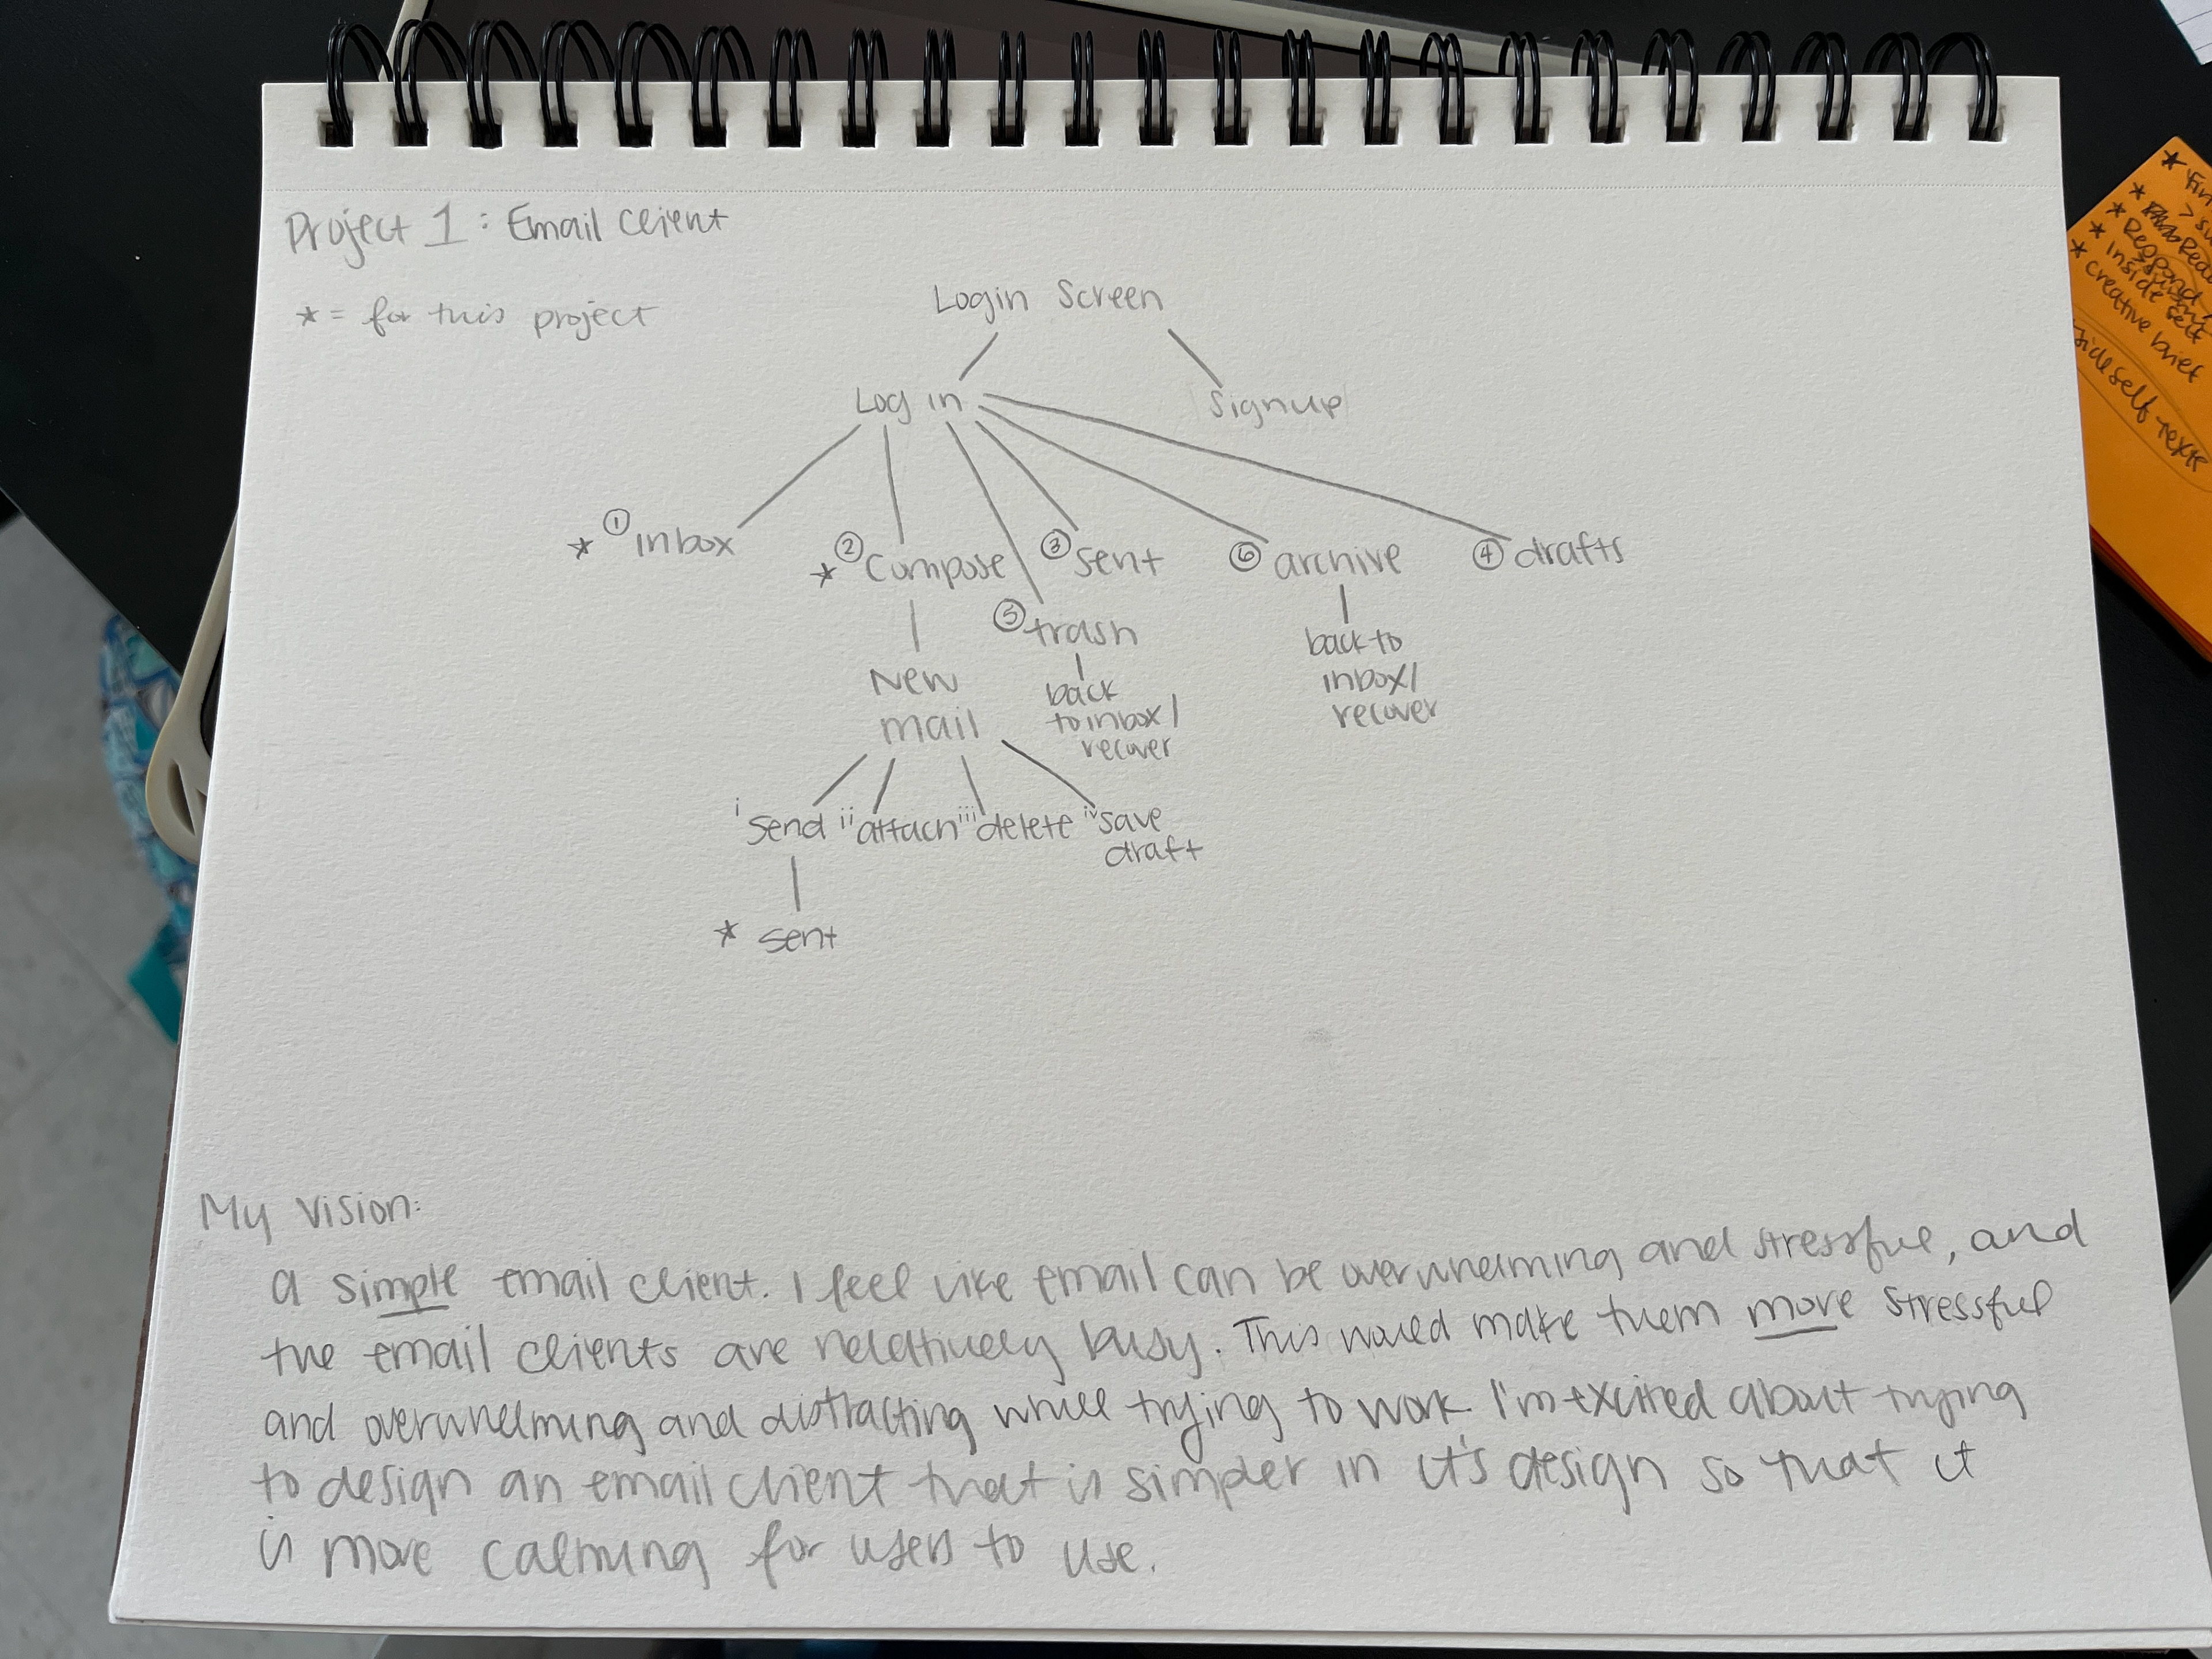 Project 1: Email Client
* = for this project
Login Screen
Log in
Signup
* ① inbox
* ② Compose
③ sent
⑥ archive
④ drafts
⑤ trash
New
mail
back
to inbox/
recover
back to
inbox/
recover
i send
ii attach
iii delete
iv save
draft
* sent
My Vision:
a simple email client. I feel like email can be overwhelming and stressful, and
the email clients are relatively busy. This would make them more stressful
and overwhelming and distracting while trying to work. I'm excited about trying
to design an email client that is simpler in it's design so that it
is more calming for users to use.
* Fin
> su
* Rea
* Respond
* inside self
* creative brief
side self-texte